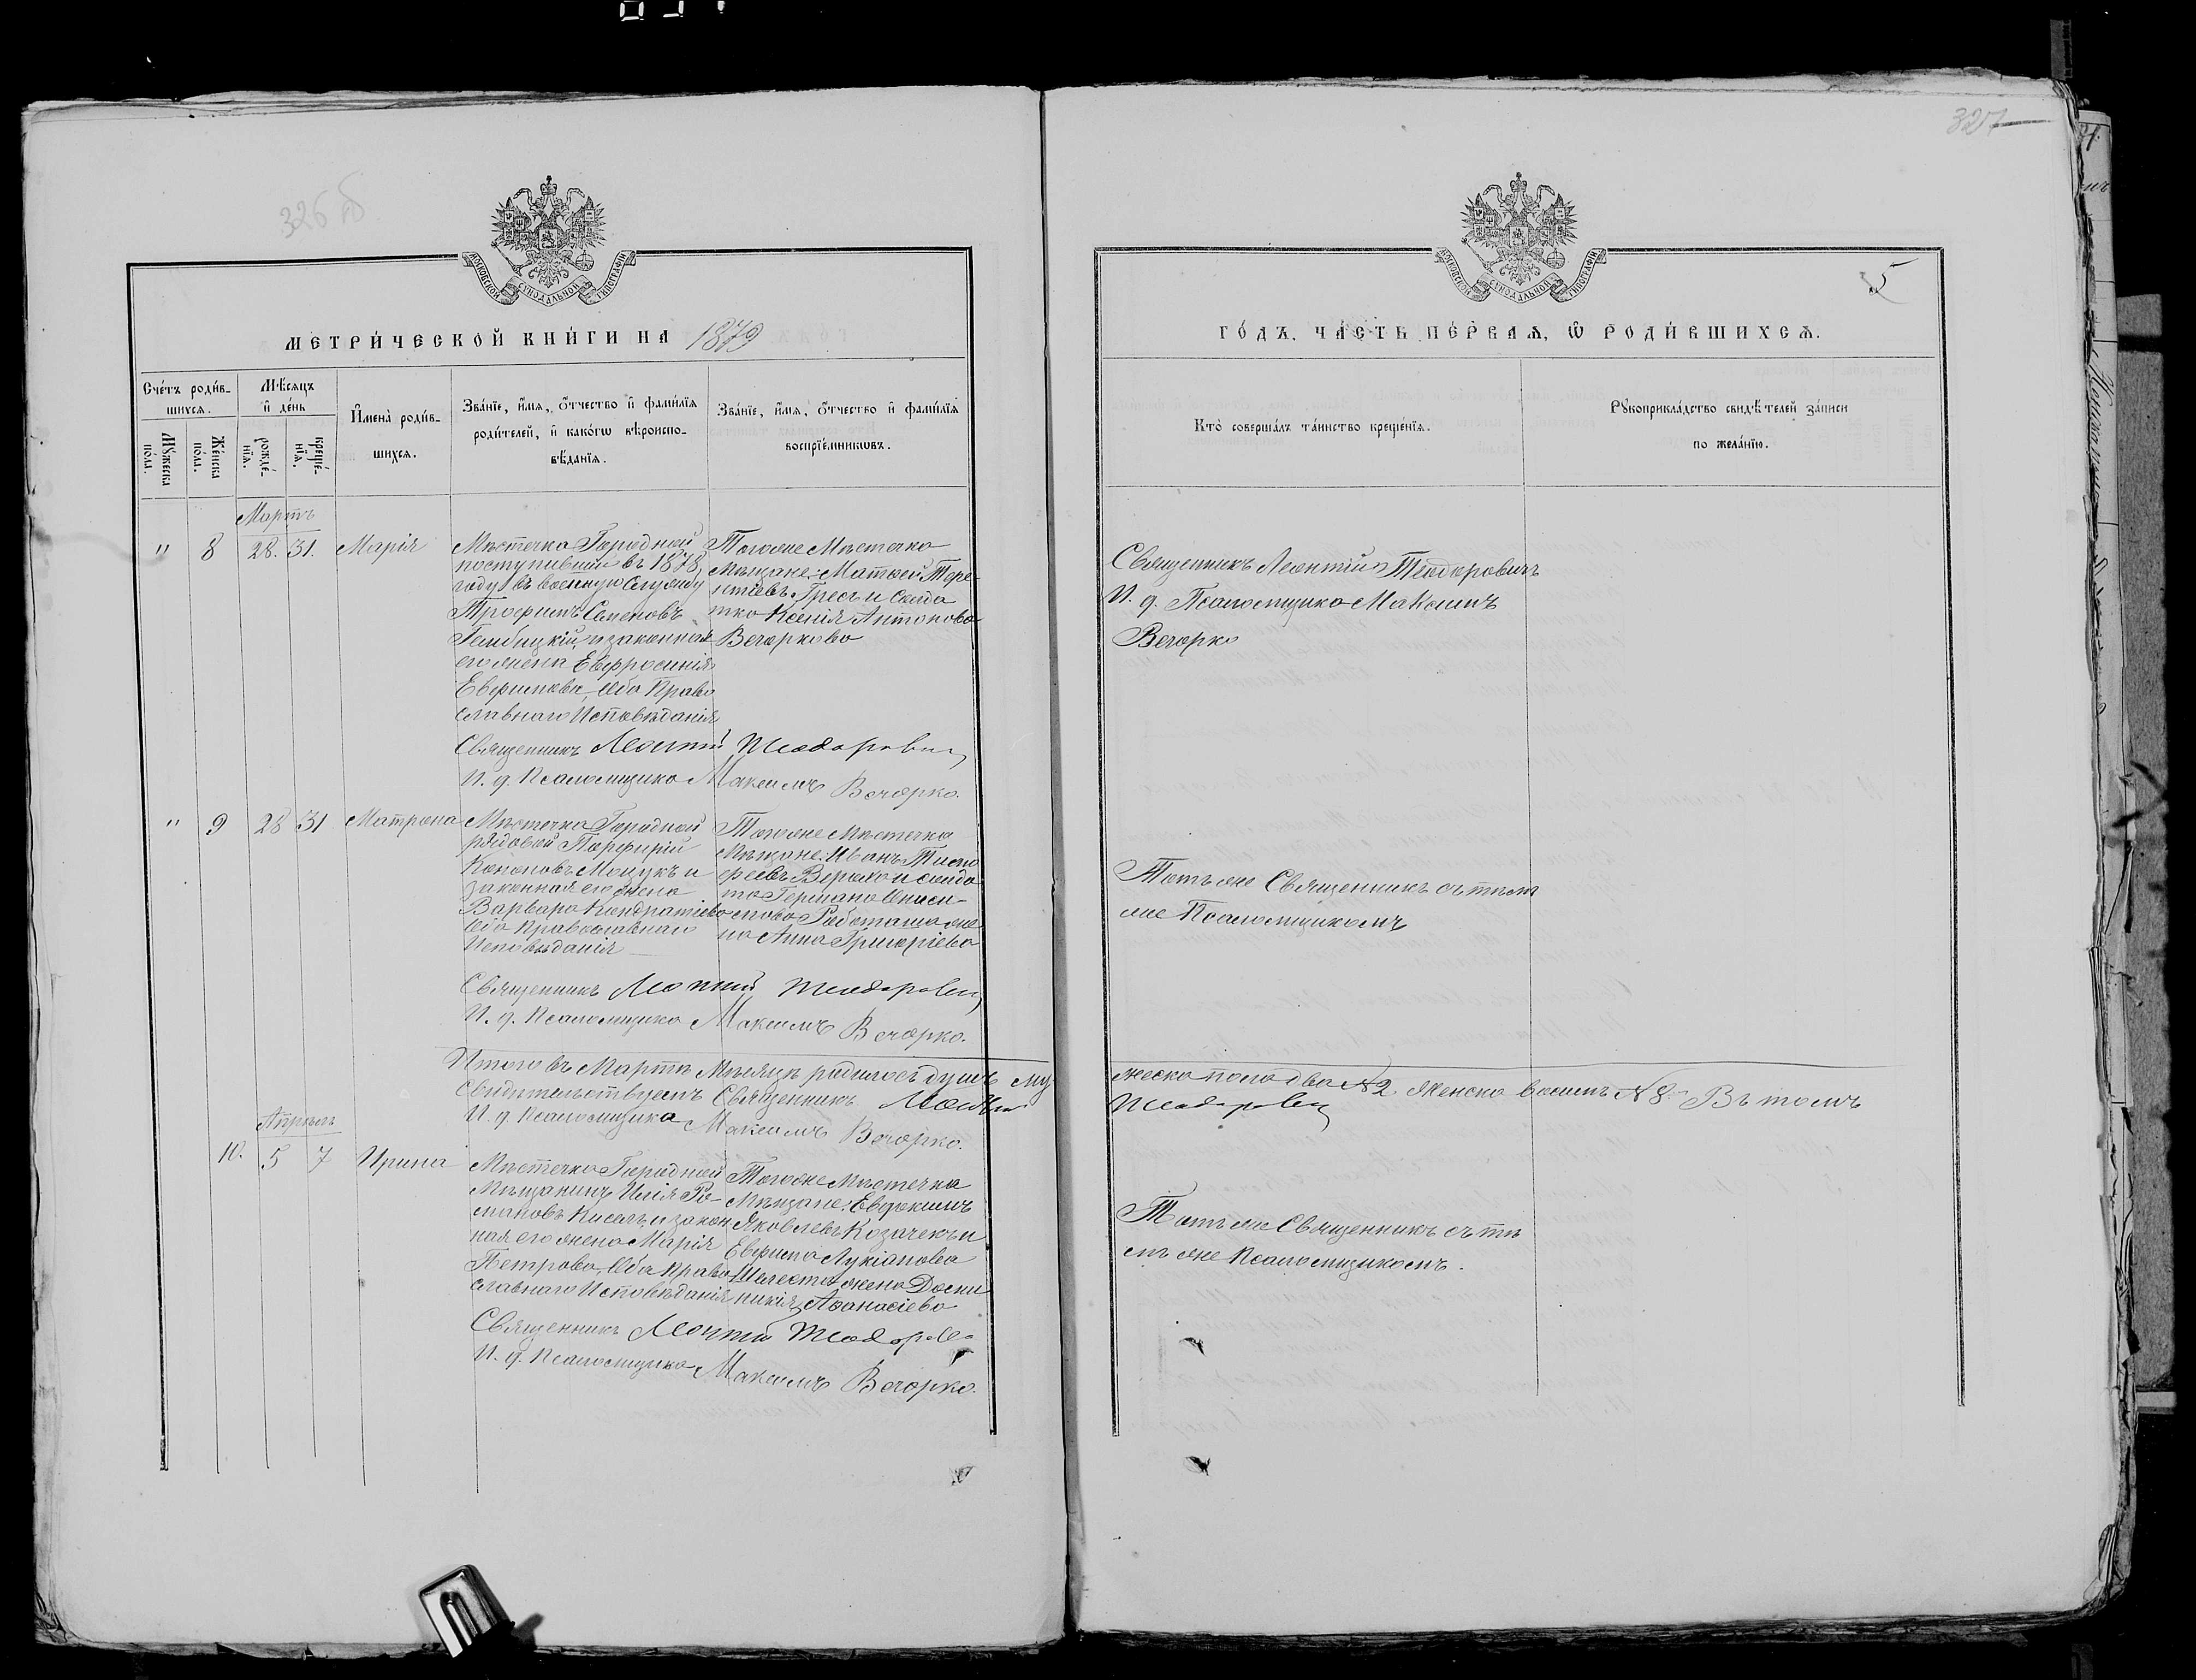 326 об
327
5
МОСКОВСКОЙ СѴНОДАЛЬНОЙ ТИПОГРАФІИ
МЕТРИ́ЧЕСКОЙ КНИ́ГИ НА 1879
Сче́тъ роди́в-
шихсѧ.
Мѣ́сѧцъ
и҆ де́нь
Мꙋжеска по́ла.
Же́нска по́ла.
рожде́-нїѧ.
креще́-нїѧ.
И҆мена̀ роди́в-
шихсѧ.
Зва́нїе, и҆́мѧ, ѻ҆́тчество и҆ фамі́лїѧ
роди́телей, и҆ како́гѡ вѣроиспо-
вѣ́данїѧ.
Зва́нїе, и҆́мѧ, ѻ҆́тчество и҆ фамі́лїѧ
воспрїе́мникѡвъ.
Мартъ
" 8 28. 31. Марія
Мѣстечка Городной
поступившій въ 1878
году въ военную службу
Трофимъ Семеновъ
и законная
его жена Евфросинія
Евфимова, оба Право
славнаго Исповѣданія
Тогоже Мѣстечка
Мѣщане: Матвей Тере-
нтіевъ Гресь и солда
тка Ксенія Антонова
Вечоркова
Священникъ Леонтій Теодоровичъ
И. д. Псаломщика Максимъ Вечорко.
" 9 28 31 Матрона
Мѣстечка Городной
рядовой Порфирій
Кононовъ Моцукъ и
законная его жена
Варвара Кондратіева
Оба Православнаго
Исповѣданія
Тогоже Мѣстечка
Мѣщане: Иванъ
и солда
та Германа Ониси-
мова жена
Анна Григоріева
Священникъ Леонтій Теодоровичъ
И. д. Псаломщика Максимъ Вечорко.
Итого въ Мартѣ Мѣсяцѣ родилось душъ му
Свидѣтельствуемъ Священникъ Леонтій
И. д. Псаломщика Максимъ Вечорко.
Апрѣль
10. 5 7 Ирина
Мѣстечка Городной
Мѣщанинъ Илія Ро-
мановъ Кисель, и закон
ная его жена Марія
Петрова, Оба Право
славнаго Исповѣданія
Тогоже Мѣстечка
Мѣщане: Евфимъ
Яковлевъ Козачекъ и
Евфима Лукіанова
Шелеста жена Доми
никія Аѳанасіева
Священникъ Леонтій Теодоров
И. д. Псаломщика Максимъ Вечорко.
МОСКОВСКОЙ СѴНОДАЛЬНОЙ ТИПОГРАФІИ
ГО́ДЪ. ЧА́СТЬ ПЕ́РВАѦ, Ѡ҆ РОДИ́ВШИХСѦ.
Кто̀ соверша́лъ та́инство креще́нїѧ.
Рꙋкоприкла́дство свидѣ́телей за́писи
по жела́нїю.
Священникъ Леонтій Теодоровичъ
И. д. Псаломщика Максимъ
Вечорко
Тотъ же Священникъ съ тѣмъ
же Псаломщикомъ
жеска пола два №2. Женска восемь №8. Въ томъ
Теодоровичъ
Тотъ же Священникъ съ тѣ
мъ же Псаломщикомъ.